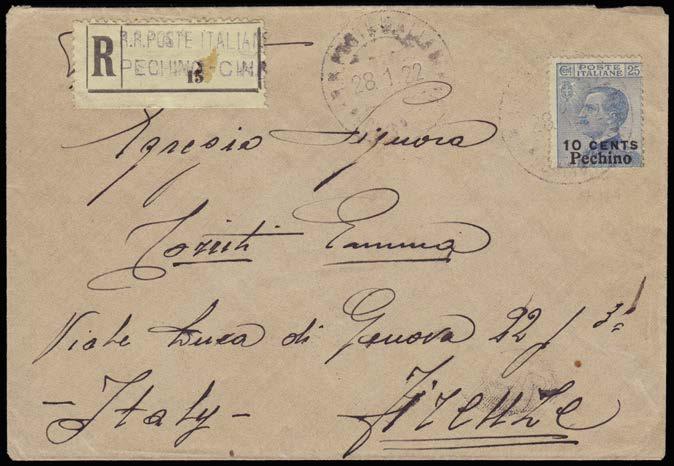 R
R.R.POSTE ITALIANE
PECHINO-CINA
15
28.1.22
POSTE
ITALIANE
25
10 CENTS
Pechino
Egregia Signora
Emma
Viale Duca di Genova 22 / 3º
- Italy - Firenze